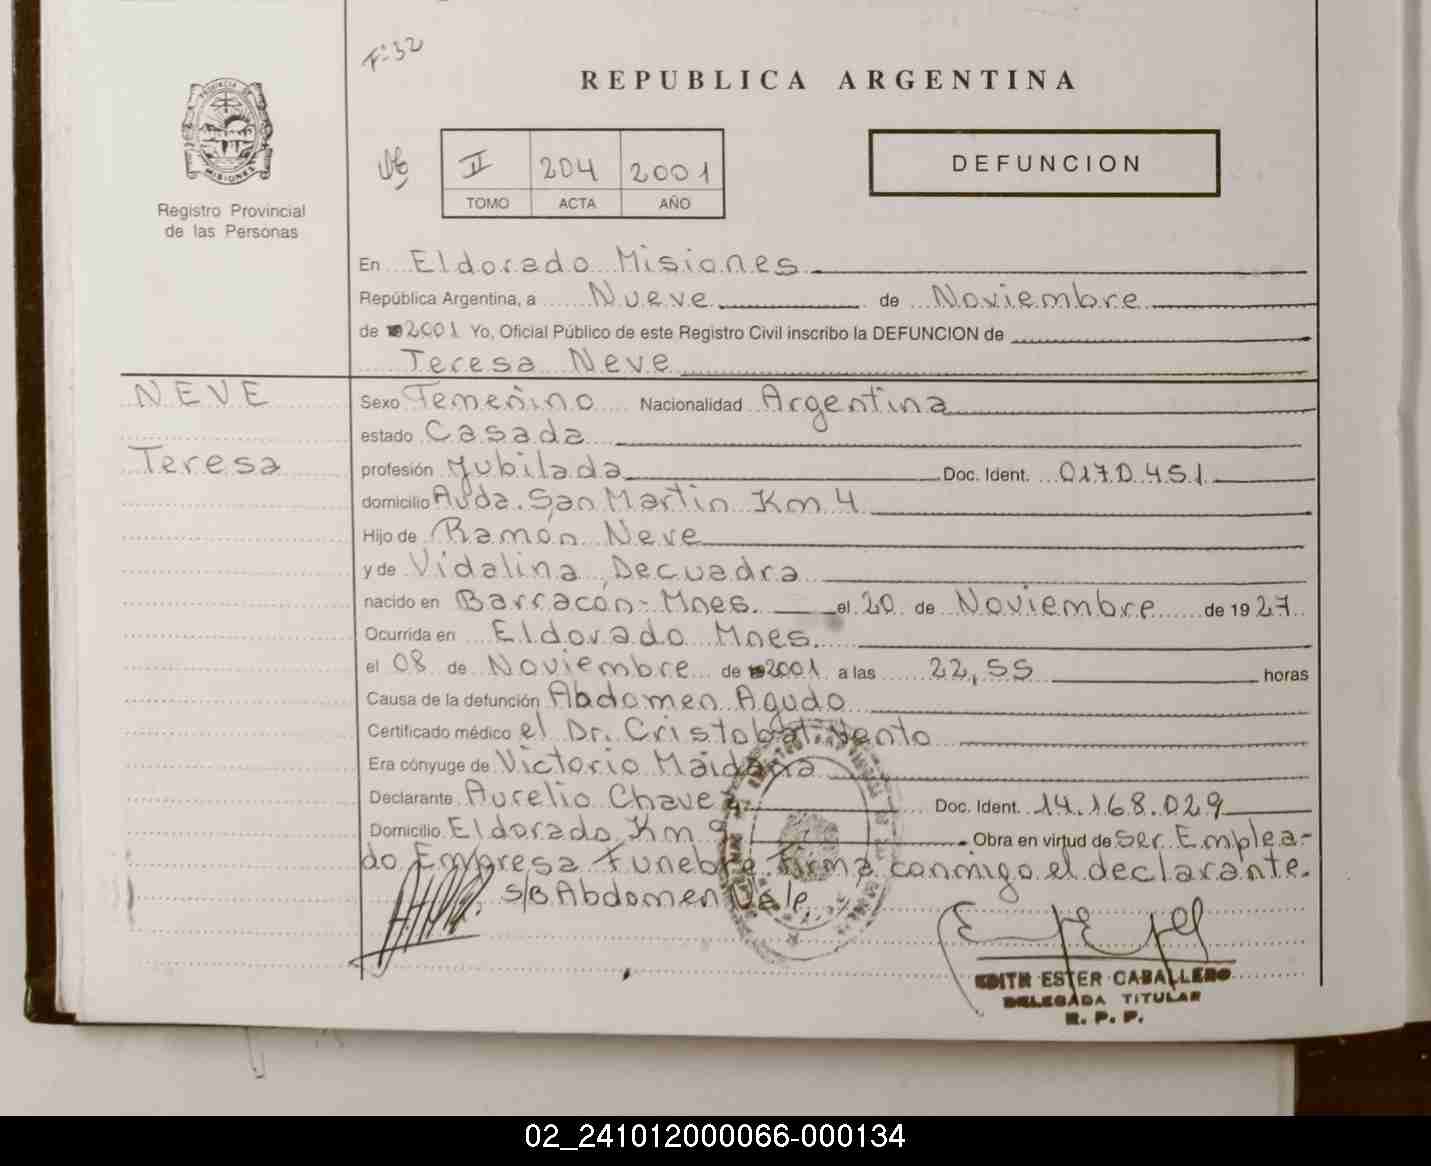 F=32
REPUBLICA ARGENTINA
II 204 2001
TOMO ACTA AÑO
DEFUNCION
PROVINCIA DE
MISIONES
Registro Provincial
de las Personas
En Eldorado Misiones
República Argentina, a Nueve de Noviembre
de 2001 Yo, Oficial Público de este Registro Civil inscribo la DEFUNCION de
Teresa Neve
NEVE
Teresa
Sexo Femenino Nacionalidad Argentina
estado Casada
profesión Jubilada Doc. Ident. 0170.451
domicilio Avda. San Martin Km 4
Hijo de Ramón Neve
y de Vidalina Decuadra
nacido en Barracón-Mnes. el 20 de Noviembre de 1927
Ocurrida en Eldorado Mnes.
el 08 de Noviembre de 2001 a las 22,55 horas
Causa de la defunción Abdomen Agudo
Certificado médico el Dr. Cristobal Vento
Era cónyuge de Victorio Maidana
Declarante Aurelio Chavez Doc. Ident. 14.168.029
Domicilio Eldorado Km 9 Obra en virtud de Ser Emplea-
do Empresa Funebre Firma conmigo el declarante.
s/B Abdomen Vale
EDITH ESTER CABALLERO
DELEGADA TITULAR
R. P. P.
02_241012000066-000134